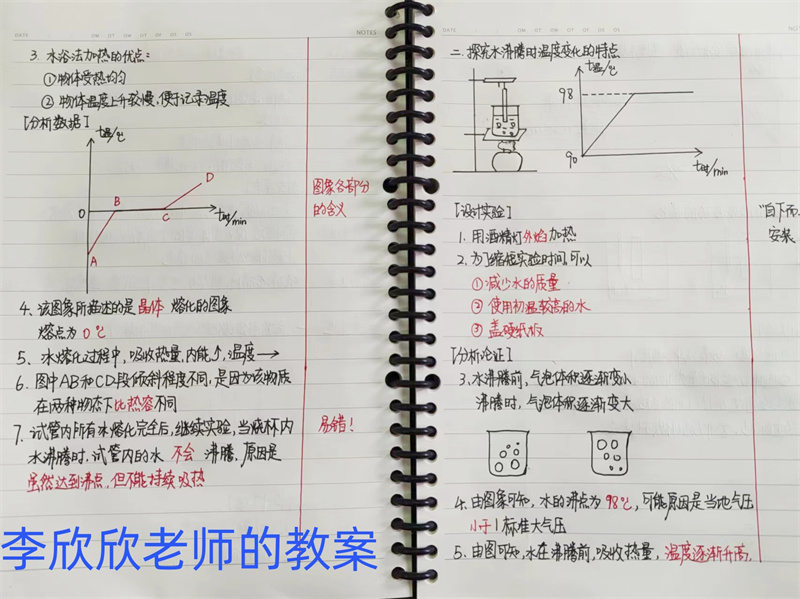 DATE
NOTES
3. 水浴法加热的优点:
①物体受热均匀
② 物体温度上升较慢,便于记录温度
[分析数据]
t温/℃
D
B
0
C
t时/min
A
图象各部分
的含义
4. 该图象所描述的是 晶体 熔化的图象
熔点为 0℃
5. 冰熔化过程中,吸收热量,内能↑,温度→
6. 图中AB和CD段倾斜程度不同,是因为该物质
在两种物态下比热容不同
7. 试管内所有冰熔化完全后,继续实验,当烧杯内
水沸腾时,试管内的水 不会 沸腾,原因是
虽然达到沸点,但不能持续吸热
易错!
李欣欣老师的教案
DATE
NOTES
二. 探究水沸腾时温度变化的特点
t温/℃
98
90
t时/min
[设计实验]
1. 用酒精灯外焰加热
2. 为了缩短实验时间,可以
①减少水的质量
② 使用初温较高的水
③ 盖硬纸板
"自下而
安装
[分析论证]
3.水沸腾前,气泡体积逐渐变小
沸腾时,气泡体积逐渐变大
4. 由图象可知,水的沸点为98℃,可能原因是当地气压
小于1标准大气压
5. 由图可知,水在沸腾前,吸收热量,温度逐渐升高.